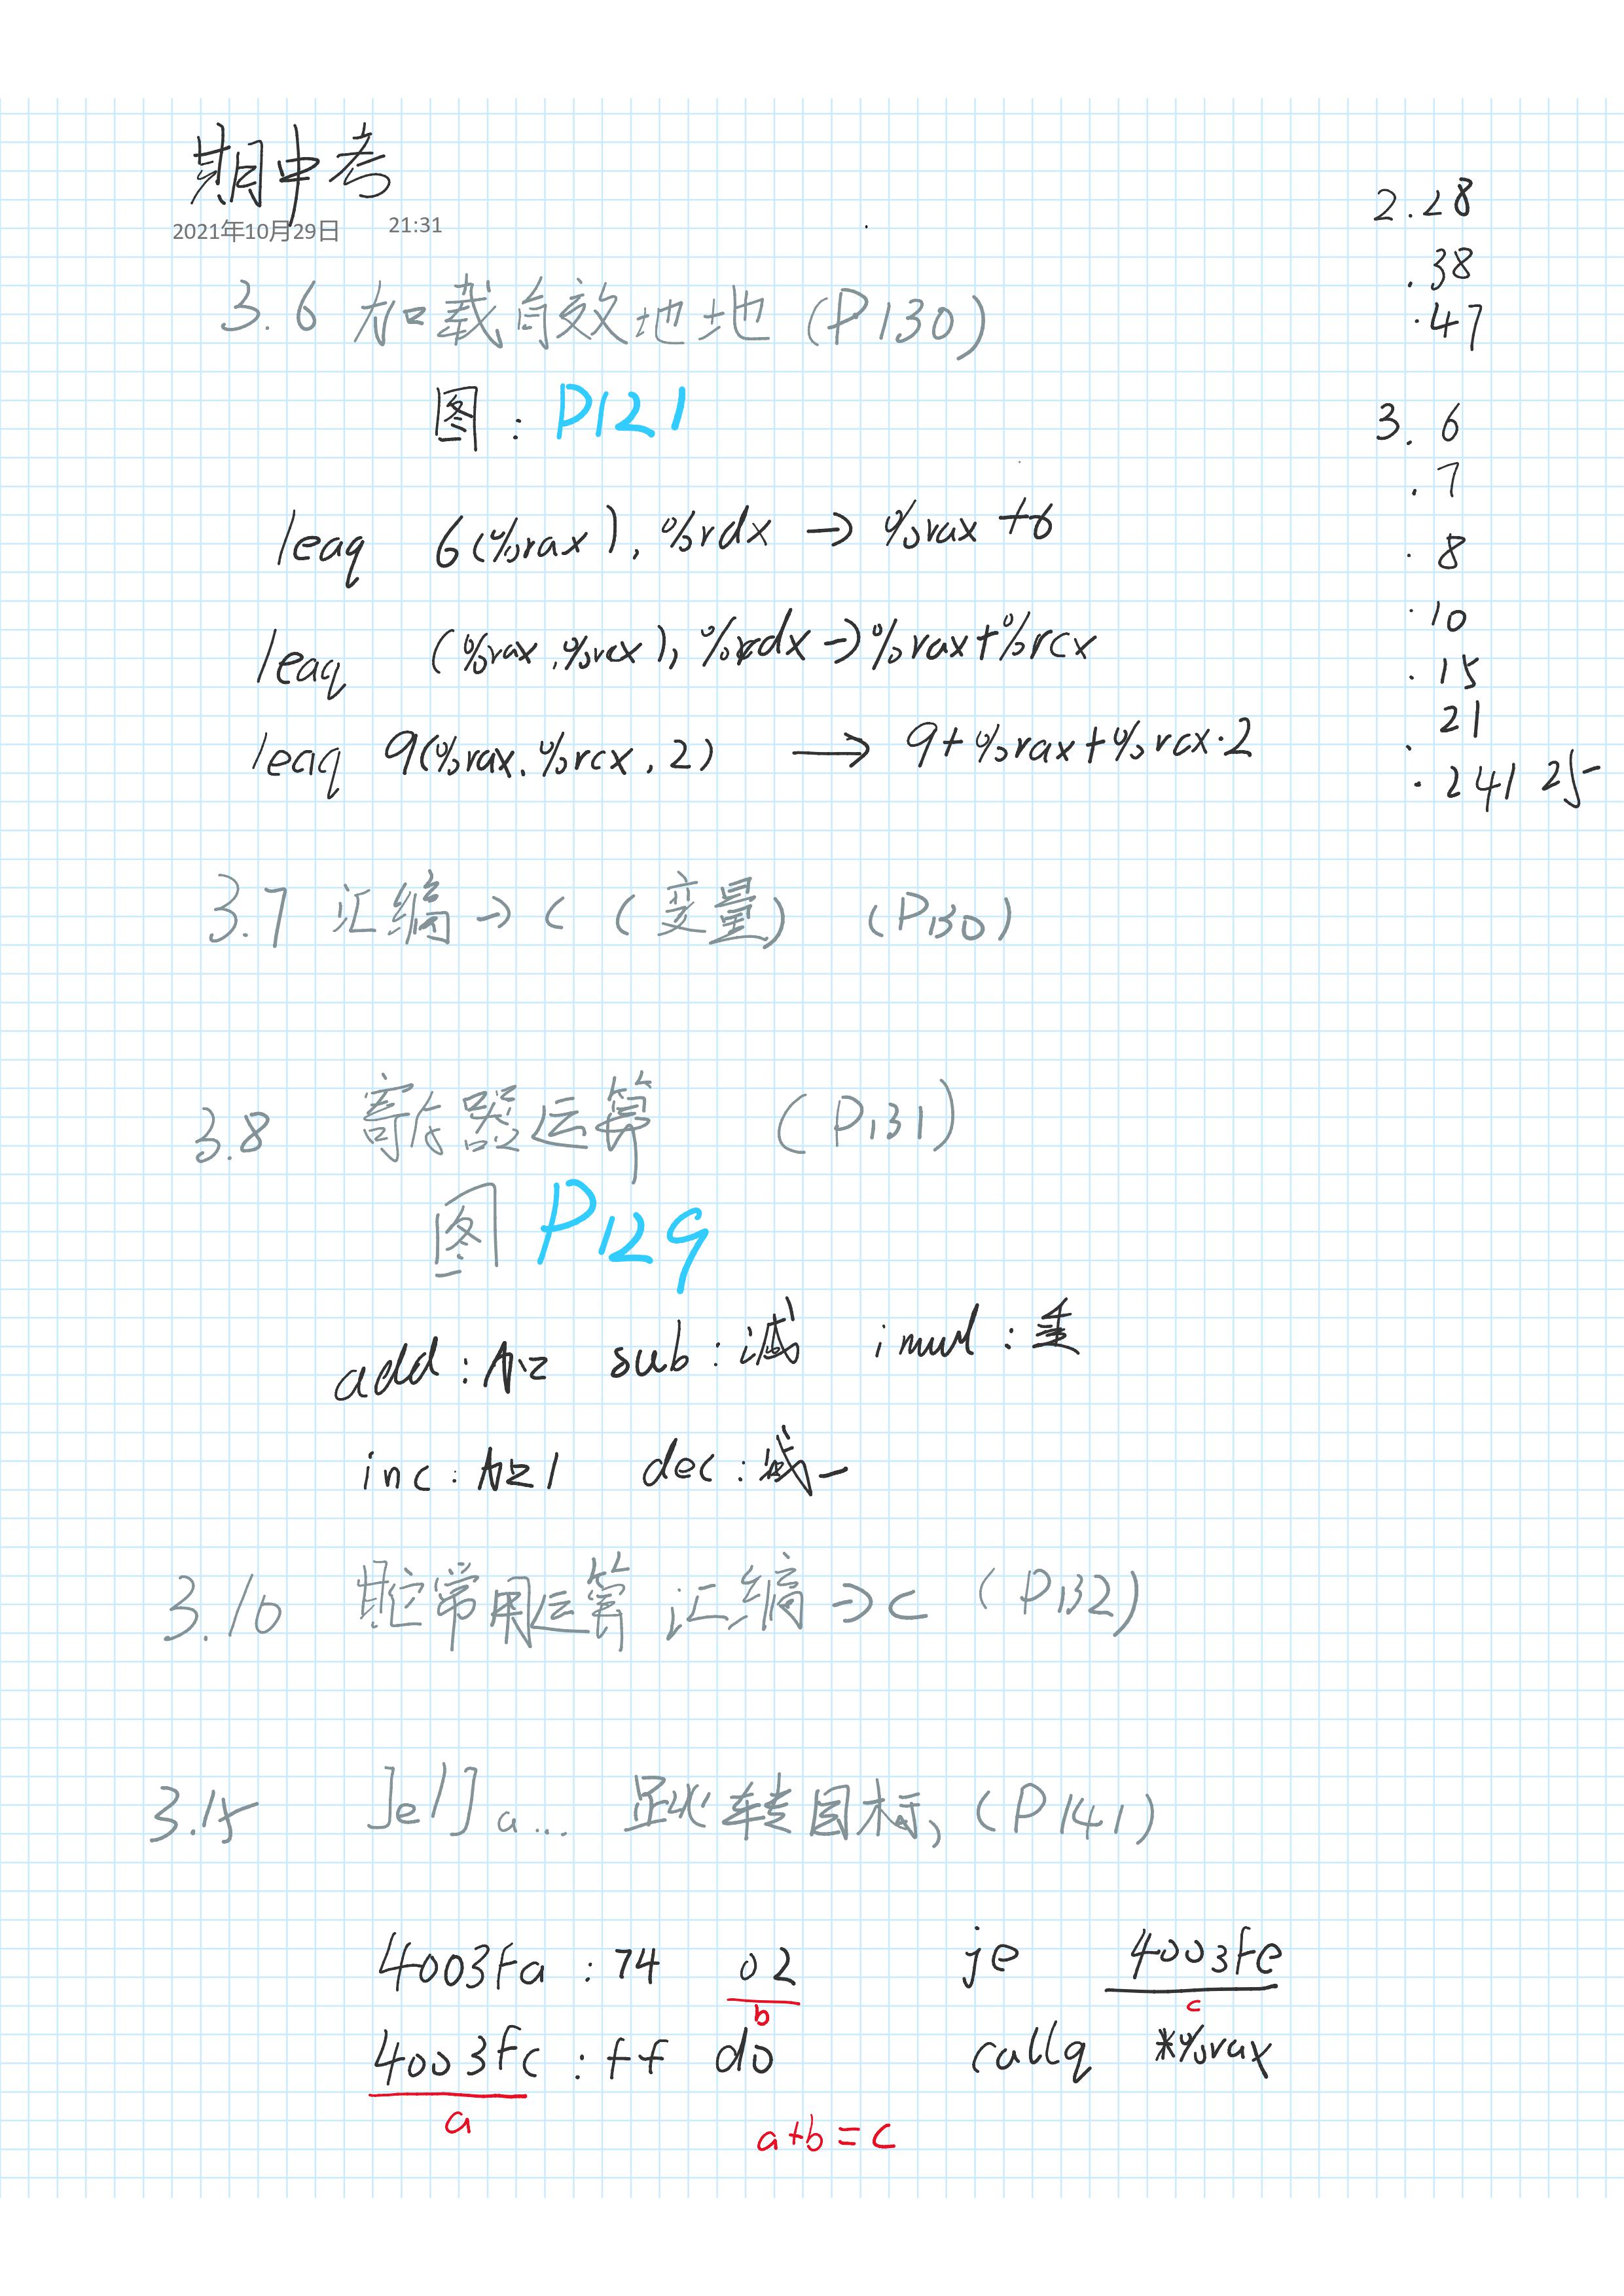 期中考
2021年10月29日 21:31
3.6 加载有效地地 (P130)
图: P121
leaq 6(%rax), %rdx → %rax+6
leaq (%rax,%rcx), %rdx → %rax+%rcx
leaq 9(%rax,%rcx,2) → 9+%rax+%rcx·2
3.7 汇编→C (变量) (P130)
3.8 寄存器运算 (P131)
图 P129
add:加 sub:减 imul:
inc:加1 dec:减一
3.10 常用运算 汇编→C (P132)
3.15 Je/Ja... 跳转目标, (P141)
4003fa : 74 02 je 4003fe
b c
4003fc : ff d0 callq *%rax
a
a+b=c
2.28
.38
.47
3.6
.7
.8
.10
.15
.21
.24 25